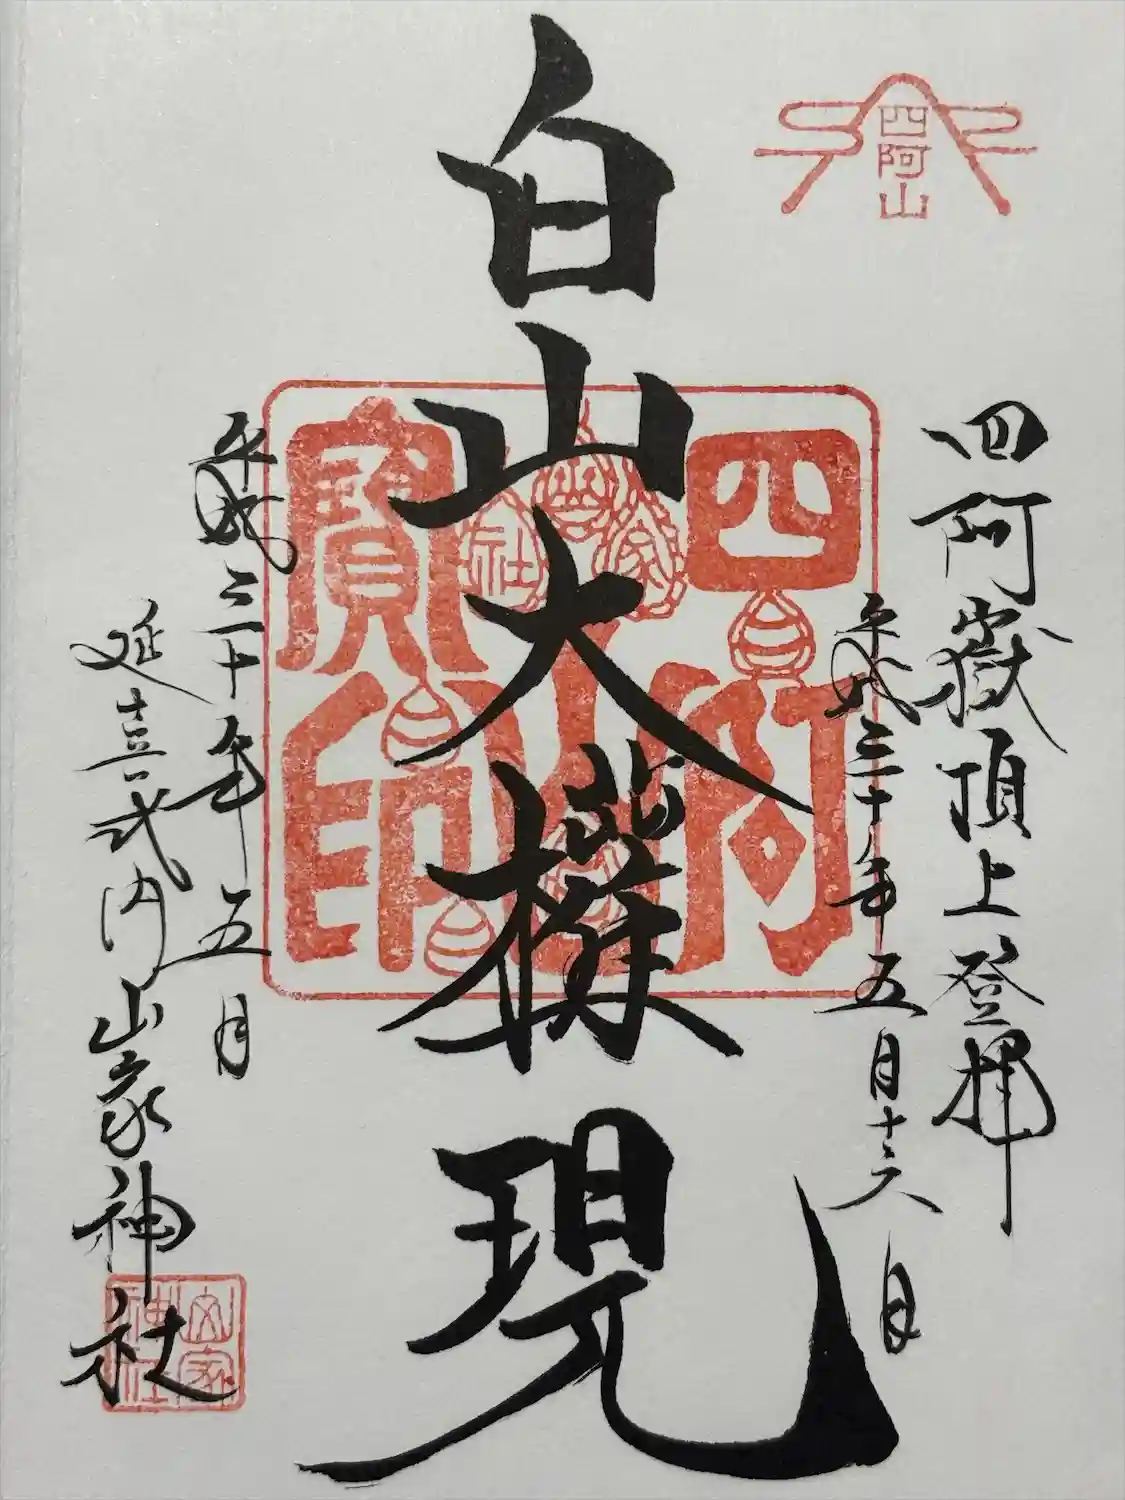 四阿山
四阿嶽頂上登拝
平成三十年五月十六日
白山大權現
四阿山
寳印
山家神社
平成三十年五月
延喜式内山家神社
山家神社